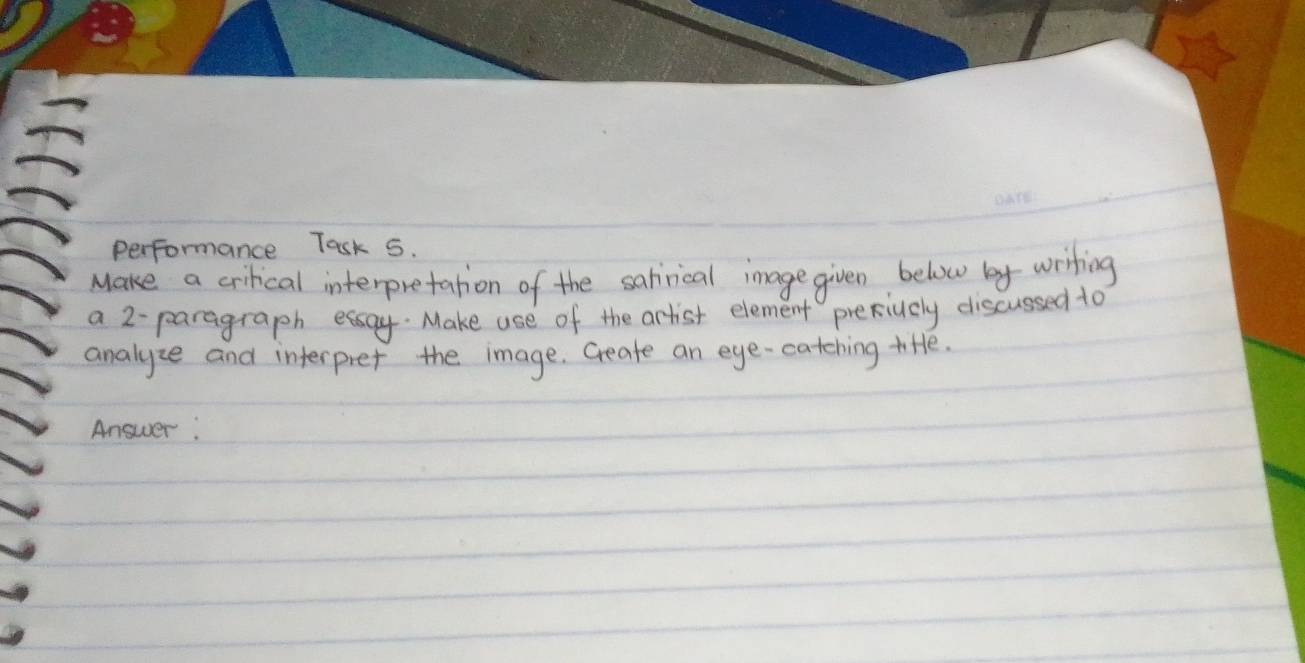 DATE
Performance Task 5.
Make a critical interpretation of the satirical image given below by writing
a 2-paragraph essay. Make use of the artist element previucly discussed to
analyze and interpret the image. Create an eye-catching title.
Answer: